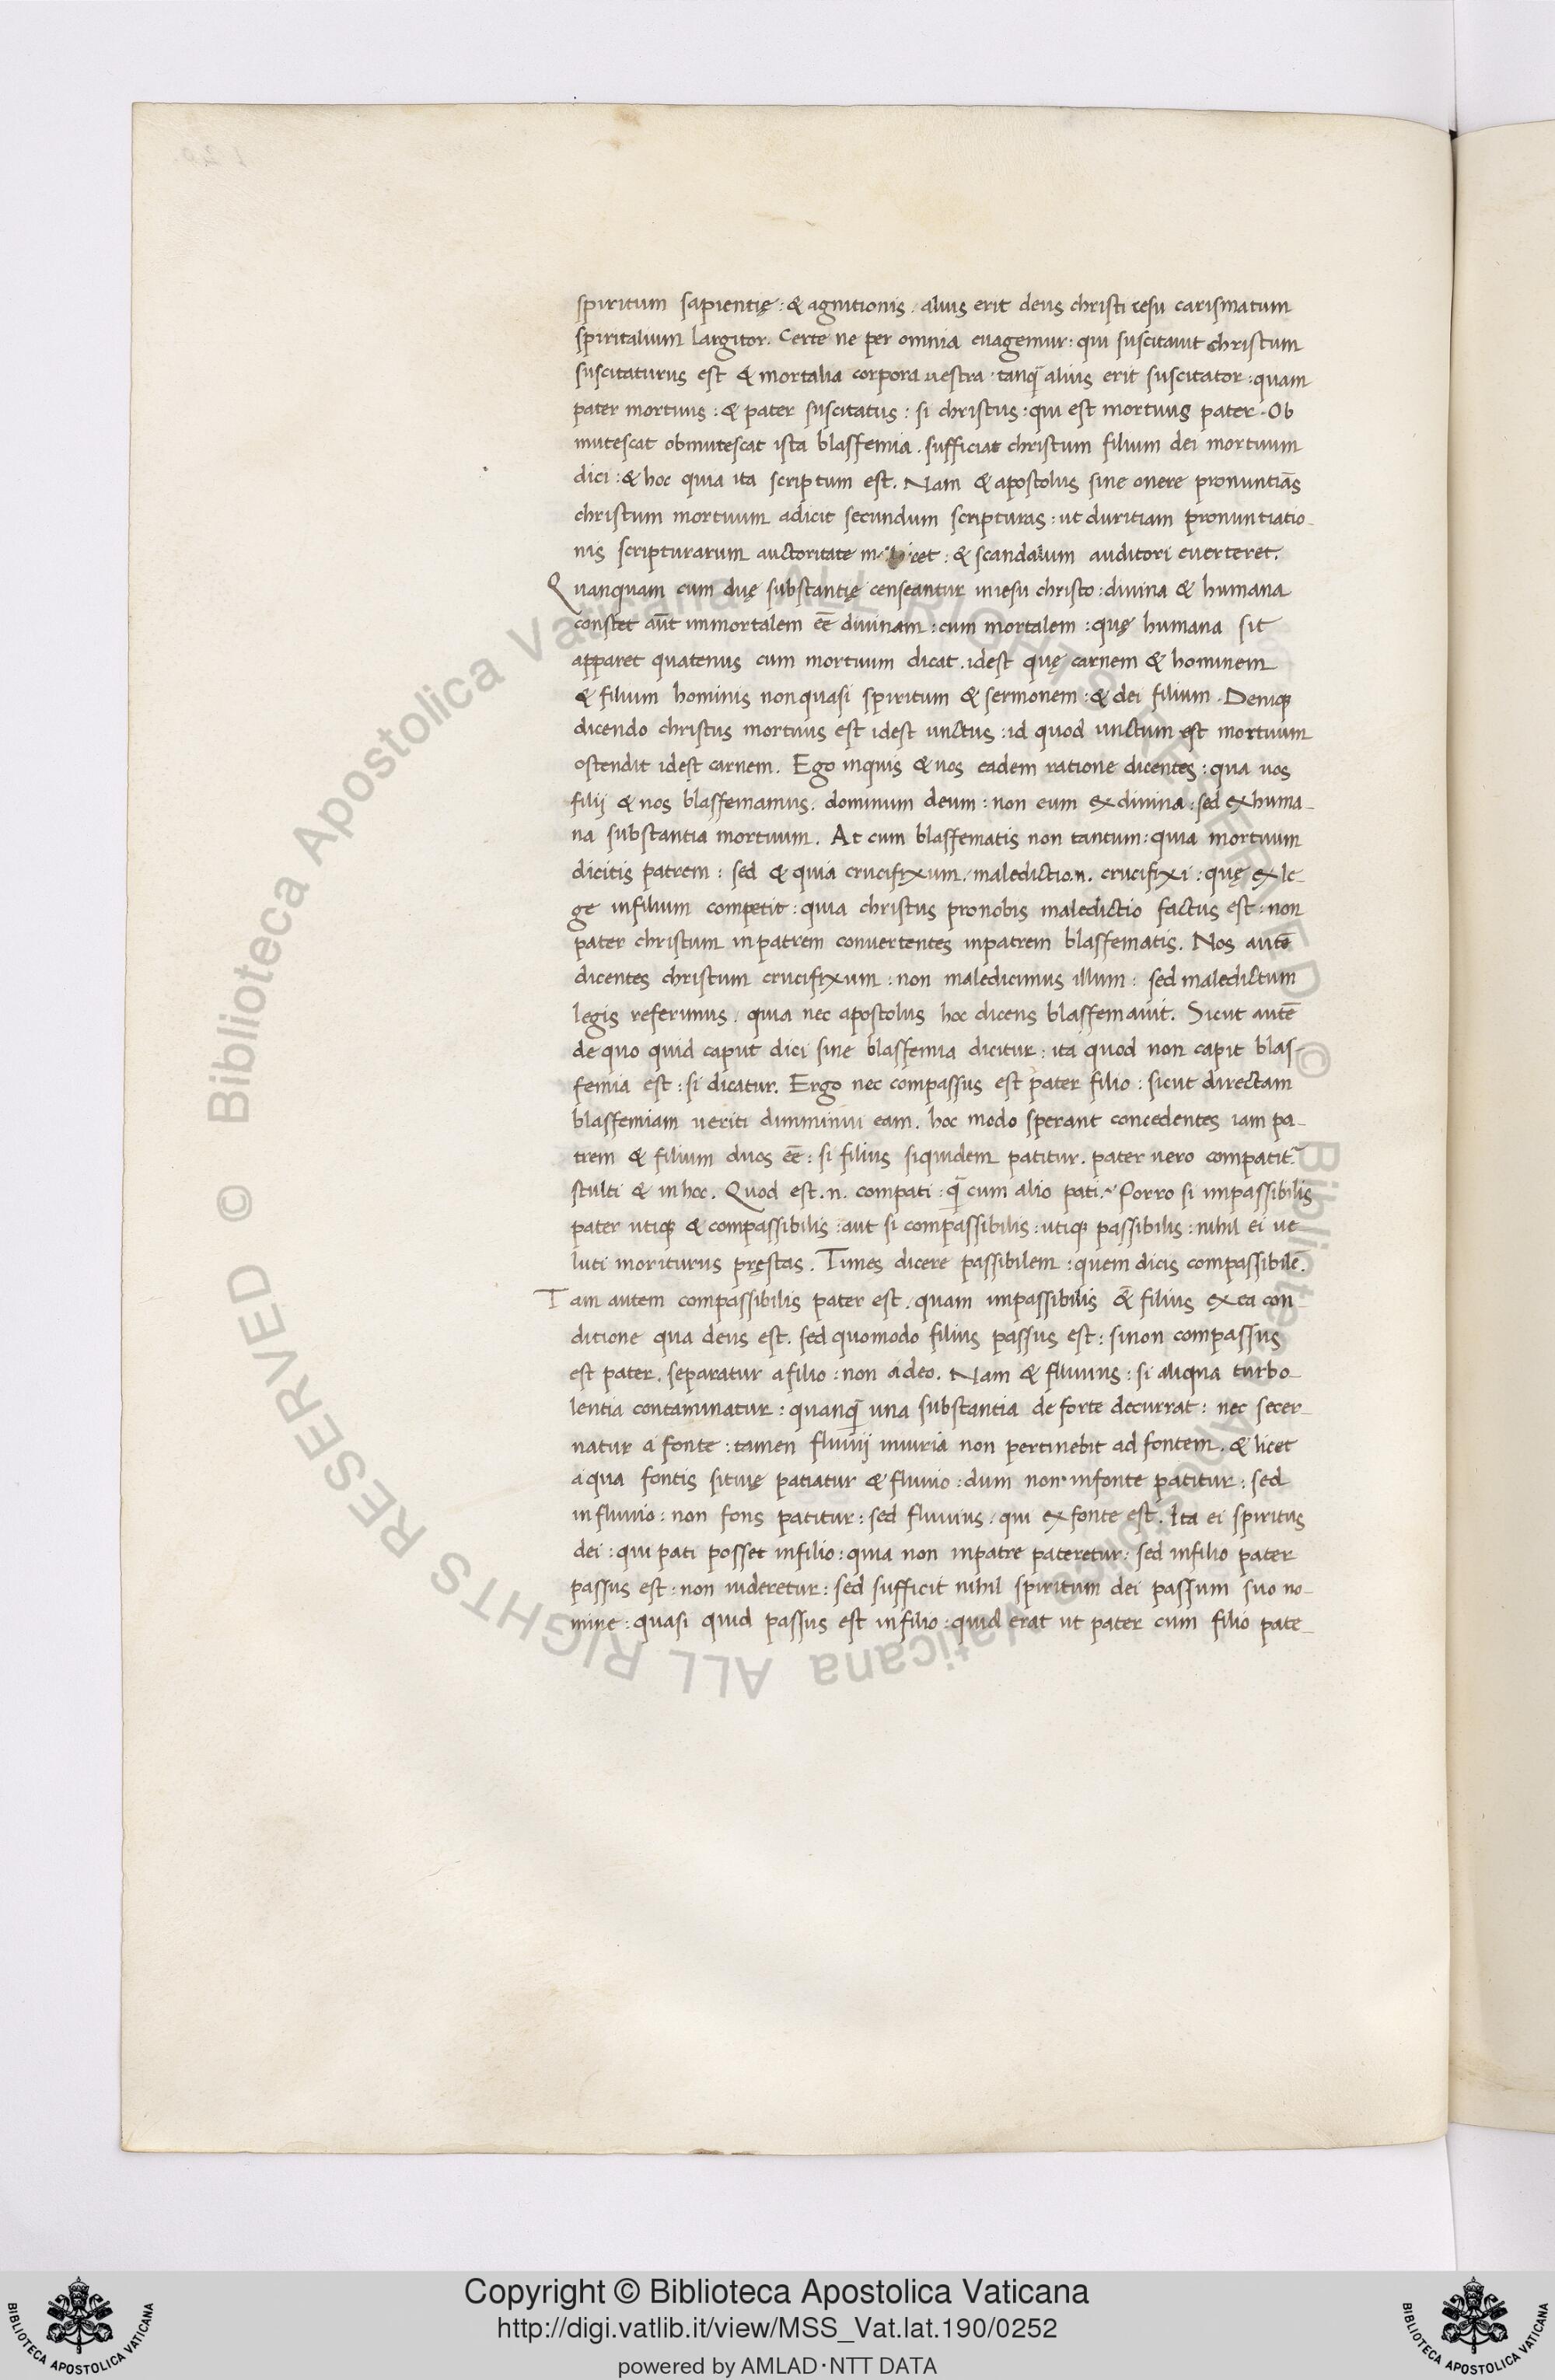 spiritum sapientię : & agnitionis . alius erit deus christi iesu carismatum
spiritalium largitor. Certe ne per omnia euagemur : qui suscitauit christum
suscitaturus est & mortalia corpora uestra . tanq̄ alius erit suscitator : quam
pater mortuus : & pater suscitatus : si christus : qui est mortuus pater . Ob
mutescat obmutescat ista blasfemia . sufficiat christum filium dei mortuum
dici : & hoc quia ita scriptum est. Nam & apostolus sine onere pronuntiās
christum mortuum adicit secundum scripturas : ut duritiam pronuntiatio-
nis scripturarum auctoritate : & scandalum auditori euerteret.
Quanquam cum duę substantię censeantur iniesu christo : diuina & humana
constet aūt immortalem eē diuinam : cum mortalem : quę humana sit
apparet quatenus cum mortuum dicat . idest quę carnem & hominem
& filium hominis nonquasi spiritum & sermonem : & dei filium . Deniq
dicendo christus mortuus est idest unctus : id quod unctum est mortuum
ostendit idest carnem. Ego inquis & uos eadem ratione dicentes : qua uos
filij & nos blasfemamus. dominum deum : non eum exdiuina : sed exhuma-
na substantia mortuum. At cum blasfematis non tantum : quia mortuum
dicitis patrem : sed & quia crucifixum. maledictio.n. crucifixi : quę exle-
ge infilium competit : quia christus pronobis maledictio factus est : non
pater christum inpatrem conuertentes inpatrem blasfematis. Nos autē
dicentes christum crucifixum : non maledicimus illum : sed maledictum
legis referimus . quia nec apostolus hoc dicens blasfemauit. Sicut autē
dequo quid caput dici sine blasfemia dicitur : ita quod non capit blas-
femia est : si dicatur. Ergo nec compassus est pater filio : sicut directam
blasfemiam ueriti diminui eam. hoc modo sperant concedentes iam pa-
trem & filium duos eē : si filius siquidem patitur. pater uero compatit᷑
stulti & inhoc. Quod est .n. compati : q̄ cum alio pati. Porro si impassibilis
pater utiq & compassibilis : aut si compassibilis : utiq passibilis : nihil ei ue
luti moriturus pręstas. Times dicere passibilem : quem dicis compassibilē.
Tam autem compassibilis pater est. quam impassibilis &̄ filius exea con-
ditione qua deus est. sed quomodo filius passus est : sinon compassus
est pater. separatur afilio : non adeo. Nam & fluuius : si aliqua turbo-
lentia contaminatur : quanq̄ una substantia deforte decurrat : nec secer-
natur a fonte : tamen fluuij iniuria non pertinebit ad fontem. & licet
aqua fontis sitquę patiatur & fluuio : dum non infonte patitur : sed
influuio : non fons patitur : sed fluuius. qui exfonte est. Ita ei spiritus
dei : qui pati posset infilio : quia non inpatre pateretur : sed infilio pater
passus est : non uideretur : sed sufficit nihil spiritum dei passum suo no-
mine : quasi quid passus est infilio : quid erat ut pater cum filio pate-
© Biblioteca Apostolica Vaticana ALL RIGHTS RESERVED © Biblioteca Apostolica Vaticana ALL RIGHTS RESERVED
BIBLIOTECA APOSTOLICA VATICANA
Copyright © Biblioteca Apostolica Vaticana
http://digi.vatlib.it/view/MSS_Vat.lat.190/0252
powered by AMLAD·NTT DATA
BIBLIOTECA APOSTOLICA VATICANA